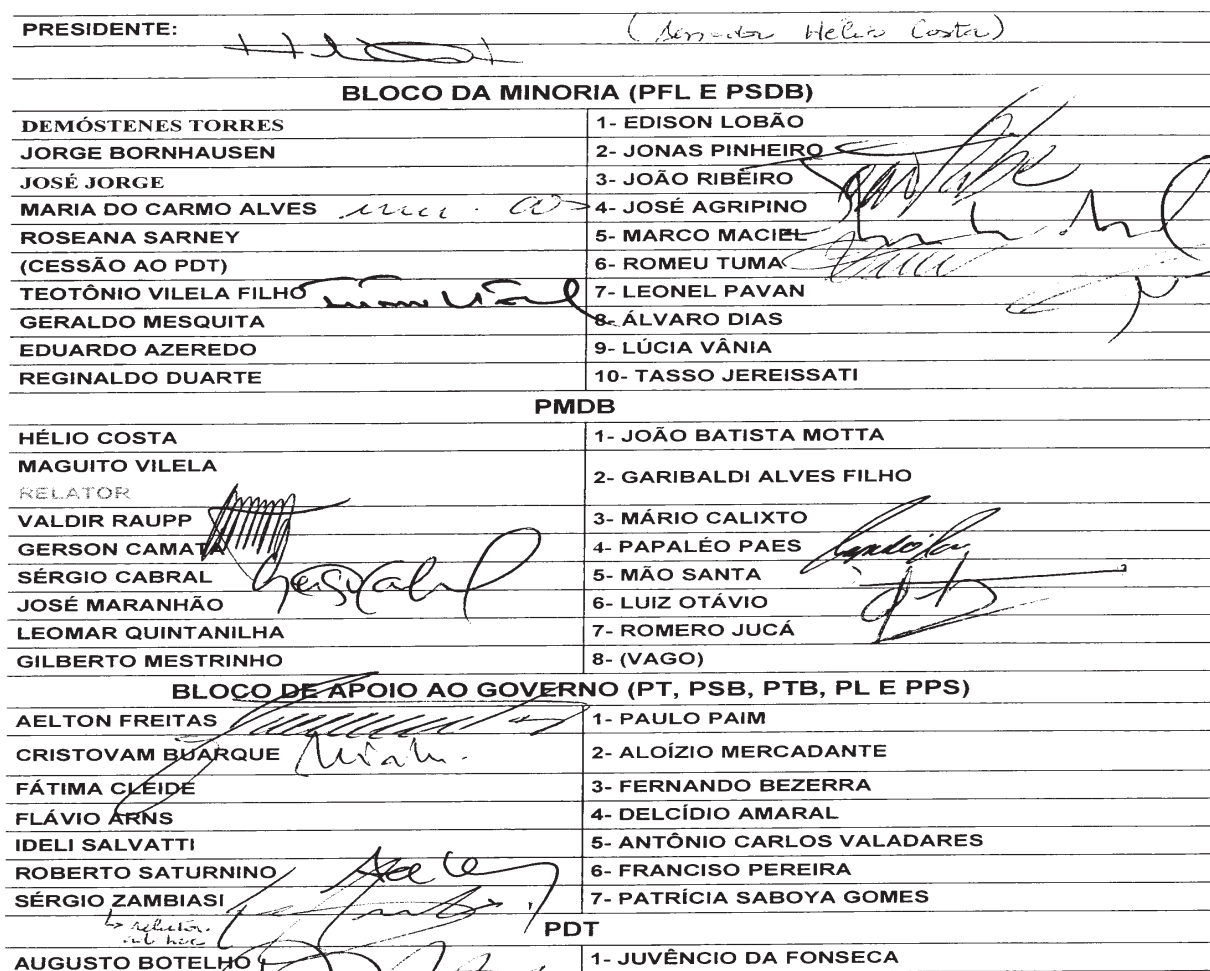 PRESIDENTE: (Senador Hélio Costa)
BLOCO DA MINORIA (PFL E PSDB)
DEMÓSTENES TORRES 1- EDISON LOBÃO
JORGE BORNHAUSEN 2- JONAS PINHEIRO
JOSÉ JORGE 3- JOÃO RIBEIRO
MARIA DO CARMO ALVES 4- JOSÉ AGRIPINO
ROSEANA SARNEY 5- MARCO MACIEL
(CESSÃO AO PDT) 6- ROMEU TUMA
TEOTÔNIO VILELA FILHO 7- LEONEL PAVAN
GERALDO MESQUITA 8- ÁLVARO DIAS
EDUARDO AZEREDO 9- LÚCIA VÂNIA
REGINALDO DUARTE 10- TASSO JEREISSATI
PMDB
HÉLIO COSTA 1- JOÃO BATISTA MOTTA
MAGUITO VILELA 2- GARIBALDI ALVES FILHO
RELATOR
VALDIR RAUPP 3- MÁRIO CALIXTO
GERSON CAMATA 4- PAPALÉO PAES
SÉRGIO CABRAL 5- MÃO SANTA
JOSÉ MARANHÃO 6- LUIZ OTÁVIO
LEOMAR QUINTANILHA 7- ROMERO JUCÁ
GILBERTO MESTRINHO 8- (VAGO)
BLOCO DE APOIO AO GOVERNO (PT, PSB, PTB, PL E PPS)
AELTON FREITAS 1- PAULO PAIM
CRISTOVAM BUARQUE 2- ALOÍZIO MERCADANTE
FÁTIMA CLEIDE 3- FERNANDO BEZERRA
FLÁVIO ARNS 4- DELCÍDIO AMARAL
IDELI SALVATTI 5- ANTÔNIO CARLOS VALADARES
ROBERTO SATURNINO 6- FRANCISO PEREIRA
SÉRGIO ZAMBIASI 7- PATRÍCIA SABOYA GOMES
relator
ad hoc
PDT
AUGUSTO BOTELHO 1- JUVÊNCIO DA FONSECA